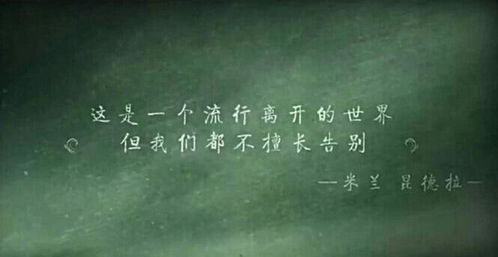 这是一个流行离开的世界
但我们都不擅长告别
—米兰 昆德拉—